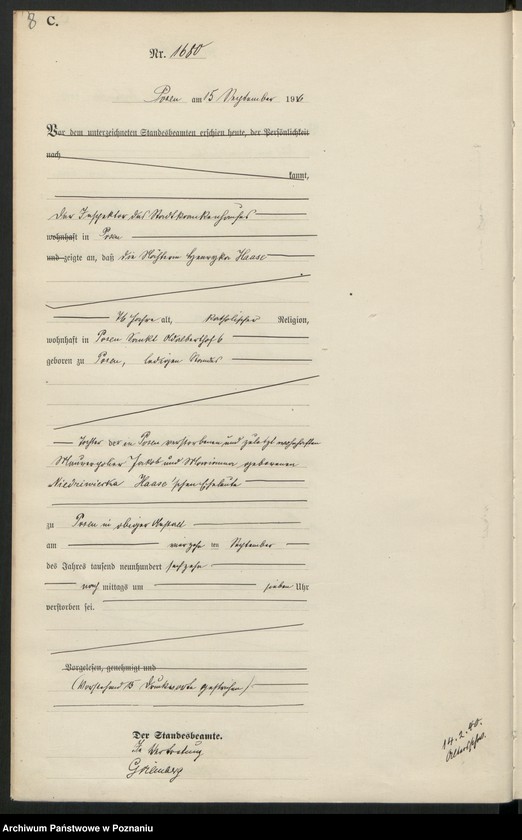 8 C.
Nr. 1680
Posen am 15 September 1916
Vor dem unterzeichneten Standesbeamten erschien heute, der Persönlichkeit
nach
kannt,
Der Inspektor des Stadtkrankenhauses
wohnhaft in Posen
und zeigte an, daß die Haase
76 Jahre alt, katholischer Religion,
wohnhaft in Posen Sankt Adalberthof 6
geboren zu Posen, ledigen Standes
Tochter der in Posen verstorbenen und zuletzt wohnhaften
Maurerpolier Jakob und geborenen
Haase'schen Eheleute
zu Posen in obiger Anstalt
am ten September
des Jahres tausend neunhundert sechzehn
nach mittags um sieben Uhr
verstorben sei.
Vorgelesen, genehmigt und
(Vorstehend 15 Druckworte gestrichen)
Der Standesbeamte.
In Vertretung
14.2.40.
Archiwum Państwowe w Poznaniu